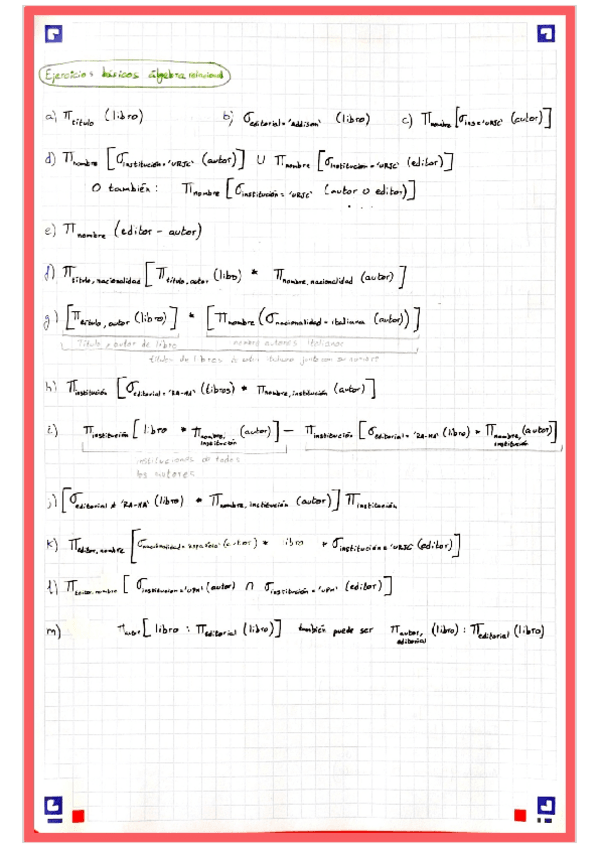 Ejercicios básicos álgebra relacional
a) π título (libro) b) σ editorial = 'Addison' (libro) c) π nombre [σ ins = 'URJC' (autor)]
d) π nombre [σ institución = 'URJC' (autor)] ∪ π nombre [σ institución = 'URJC' (editor)]
o también: π nombre [σ institución = 'URJC' (autor o editor)]
e) π nombre (editor - autor)
f) π título, nacionalidad [π título, autor (libro) * π nombre, nacionalidad (autor)]
g) [π título, autor (libro)] * [π nombre (σ nacionalidad = italiana (autor))]
Título y autor de libro nombre autores italianos
títulos de libros de autor italiano junto con su autor
h) π institución [σ editorial = 'RA-MA' (libros) * π nombre, institución (autor)]
i) π institución [libro * π nombre, institución (autor)] - π institución [σ editorial = 'RA-MA' (libro) * π nombre, institución (autor)]
instituciones de todos
los autores
j) [σ editorial ≠ 'RA-MA' (libro) * π nombre, institución (autor)] π institución
k) π editor, nombre [σ nacionalidad = 'española' (autor) * libro * σ institución = 'URJC' (editor)]
l) π nombre [σ institución = 'UPM' (autor) ∩ σ institución = 'UPM' (editor)]
m) π autor [libro : π editorial (libro)] también puede ser π autor, editorial (libro) : π editorial (libro)